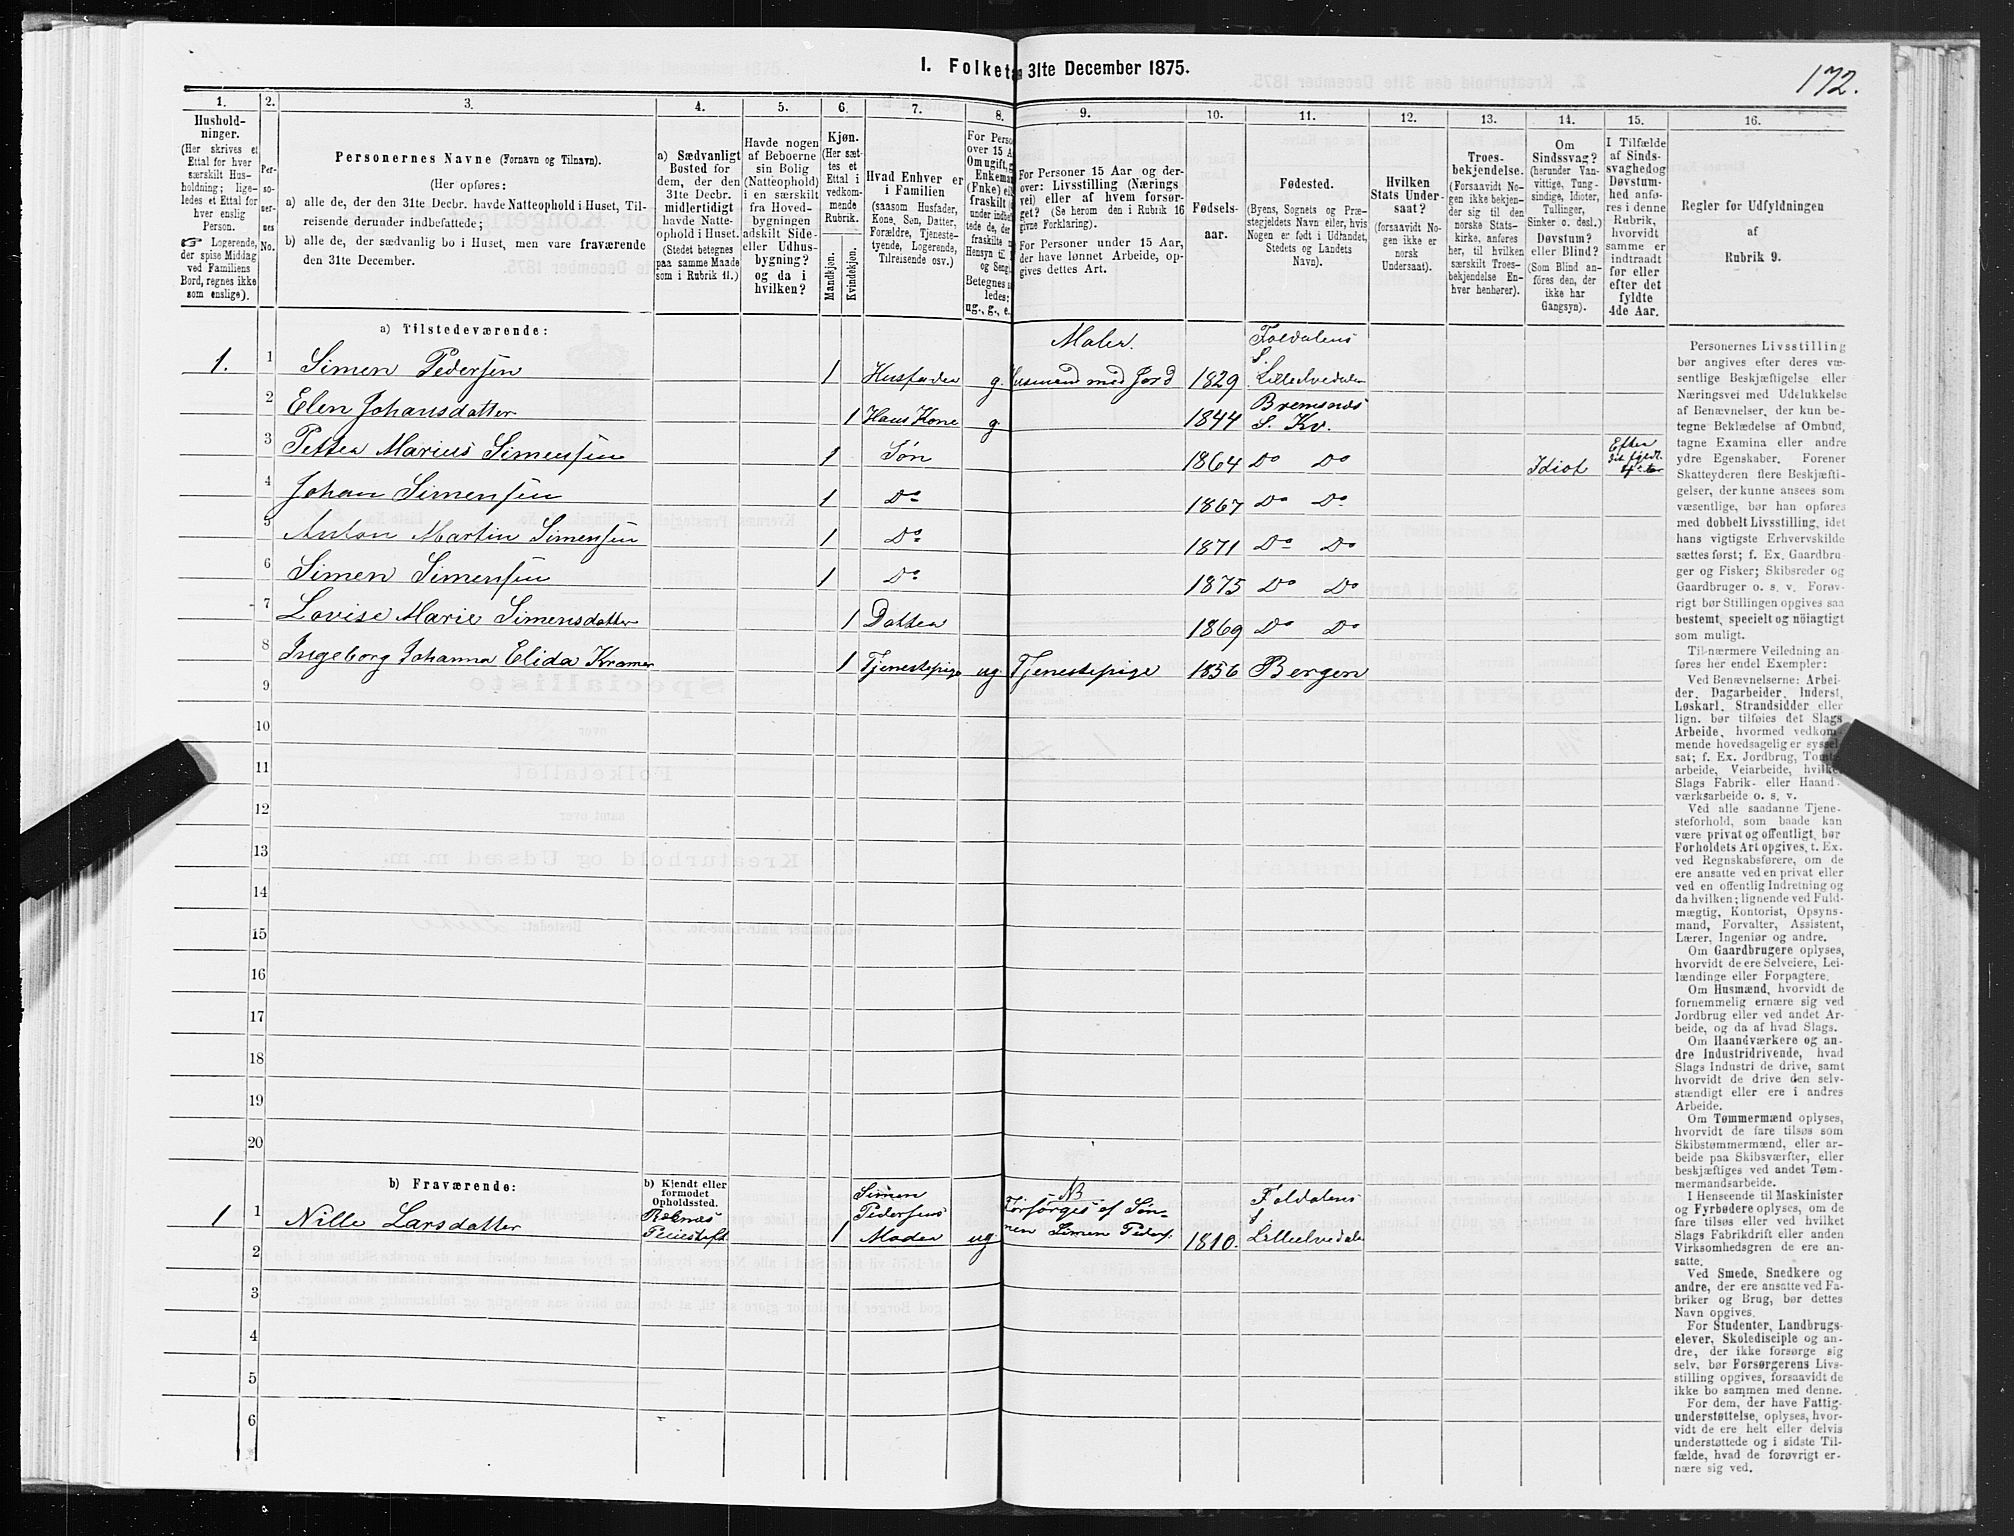 I. Folketa 31te December 1875.
172.
1.
2.
3.
4.
5.
6.
7.
8.
9.
10.
11.
12.
13.
14.
15.
16.
Hushold-
ninger.
(Her skrives et
Ettal for hver
særskilt Hus-
holdning; lige-
ledes et Ettal for
hver enslig
Person.
☞ Logerende,
der spise Middag
ved Familiens
Bord, regnes ikke
som enslige).
Per-
so-
ner-
nes
No.
Personernes Navne (Fornavn og Tilnavn).
(Her opføres:
a) alle de, der den 31te Decbr. havde Natteophold i Huset, Til-
reisende derunder indbefattede;
b) alle de, der sædvanlig bo i Huset, men vare fraværende
den 31te December.
a) Sædvanligt
Bosted for
dem, der den
31te Decbr.
midlertidigt
havde Natte-
ophold i Huset.
(Stedet betegnes
paa samme Maade
som i Rubrik 11.)
Havde nogen
af Beboerne
sin Bolig
(Natteophold)
i en særskilt
fra Hoved-
bygningen
adskilt Side-
eller Udhus-
bygning?
og da i
hvilken?
Kjøn.
(Her sæt-
tes et
Ettal i
vedkom-
mende
Rubrik.
Mandkjøn.
Kvindekjøn.
Hvad Enhver er
i Familien
(saasom Husfader,
Kone, Søn, Datter,
Forældre, Tjeneste-
tyende, Logerende,
Tilreisende osv.)
For Perso
over 15 A
Om ugift, g
Enkeman
(Fnke) el
fraskilt
under indbef
tede de, der
fraskilte
Hensyn til
og Seng.
Betegnes s
ledes:
ug., g., e.
For Personer 15 Aar og der-
over: Livsstilling (Nærings
vei) eller af hvem forsør-
get? (Se herom den i Rubrik 16
givne Forklaring).
For Personer under 15 Aar,
der have lønnet Arbeide, op-
gives dettes Art.
Fødsels-
aar.
Fødested.
(Byens, Sognets og Præ-
stegjeldets Navn eller, hvis
Nogen er født i Udlandet,
Stedets og Landets
Navn).
Hvilken
Stats Under-
saat?
(forsaavidt No-
gen ikke er
norsk
Undersaat).
Troes-
bekjendelse.
(Forsaavidt No-
gen ikke bekjen-
der sig til den
norske Stats-
kirke, anføres
her, til hvilken
særskilt Troes-
bekjendelse En-
hver henhører).
Om
Sindssvag?
(herunder Van-
vittige, Tung-
sindige, Idioter,
Tullinger,
Sinker o. desl.)
Døvstum?
eller Blind?
(Som Blind an-
føres den, der
ikke har
Gangsyn).
I Tilfælde
af Sinds-
svaghed og
Døvstum-
hed anfø-
res i denne
Rubrik,
hvorvidt
samme er
indtraadt
før eller
efter det
fyldte
4de Aar.
Regler for Udfyldningen
af
Rubrik 9.
a) Tilstedeværende:
1. 1 Simen Pedersen 1 Husfader g. Maler. usmand med Jord 1829 Foldalens S. Lilleelvedalen
2 Elen Johansdatter 1 Hans Kone g. 1844 Bremsnæs S. Kv.
3 Petter Marius Simensen 1 Søn 1864 Do Do Idiot Efter
4 Johan Simensen 1 Do 1867 Do Do
5 Anton Martin Simensen 1 Do 1871 Do Do
6 Simen Simensen 1 Do 1875 Do Do
7 Lovise Marie Simensdatter 1 Datter 1869 Do Do
8 Ingeborg Johanna Elida Kramer 1 Tjenestepige ug Tjenestepige 1856 Bergen
9
10
11
12
13
14
15
16
17
18
19
20
b) Fraværende:
b) Kjendt eller
formodet
Opholdssted.
1 1 Nille Larsdatter 1 Simen Pedersens Moder ug. NB Forsørges af Søn- nen Simen Peders. 1810. Foldalens S Lilleelvedalen
2
3
4
5
6
Personernes Livsstilling
bør angives efter deres væ-
sentlige Beskjæftigelse eller
Næringsvei med Udelukkelse
af Benævnelser, der kun be-
tegne Beklædelse af Ombud,
tagne Examina eller andre
ydre Egenskaber. Forener
Skatteyderen flere Beskjæfti-
gelser, der kunne ansees som
væsentlige, bør han opføres
med dobbelt Livsstilling, idet
hans vigtigste Erhvervskilde
sættes først; f. Ex. Gaardbru-
ger og Fisker; Skibsreder og
Gaardbruger o. s. v. Forøv-
rigt bør Stillingen opgives saa
bestemt, specielt og nöiagtigt
som muligt.
Til nærmere Veiledning an-
føres her endel Exempler:
Ved Benævnelserne: Arbei-
der, Dagarbeider, Inderst,
Løskarl, Strandsidder eller
lign. bør tilføies det Slags
Arbeide, hvormed vedkom-
mende hovedsagelig er syssel-
sat; f. Ex. Jordbrug, Tomte
arbeide, Veiarbeide, hvilket
Slags Fabrik- eller Haand-
værksarbeide o. s. v.
Ved alle saadanne Tjene-
steforhold, som baade kan
være privat og offentligt, bør
Forholdets Art opgives, t. Ex.
ved Regnskabsførere, om de
ere ansatte ved en privat eller
ved en offentlig Indretning og
da hvilken; lignende ved Fuld-
mægtig, Kontorist, Opsyns-
mand, Forvalter, Assistent,
Lærer, Ingeniør og andre.
Om Gaardbrugere oplyses,
hvorvidt de ere Selveiere, Lei-
lændinge eller Forpagtere.
Om Husmænd, hvorvidt de
fornemmelig ernære sig ved
Jordbrug eller ved andet Ar-
beide, og da af hvad Slags.
Om Haandværkere og an-
dre Industridrivende, hvad
Slags Industri de drive, samt
hvorvidt de drive den selv-
stændigt eller ere i andres
Arbeide.
Om Tømmermænd oplyses,
hvorvidt de fare tilsøs som
Skibstømmermænd, eller ar-
beide paa Skibsværfter, eller
beskjæftiges ved andet Tøm-
mermandsarbeide.
I Henseende til Maskinister
og Fyrbødere oplyses, om de
fare tilsøs eller ved hvilket
Slags Fabrikdrift eller anden
Virksomhedsgren de ere an-
satte.
Ved Smede, Snedkere og
andre, der ere ansatte ved Fa-
briker og Brug, bør dettes
Navn opgives.
For Studenter, Landbrugs-
elever, Skoledisciple og an-
dre, der ikke forsørge sig
selv, bør Forsørgerens Livs-
stilling opgives, forsaavidt de
ikke bo sammen med denne.
For dem, der have Fattig-
understøttelse, oplyses, hvor-
vidt de ere helt eller delvis
understøttede og i sidste Til-
fælde, hvad de forøvrigt er-
nære sig ved.